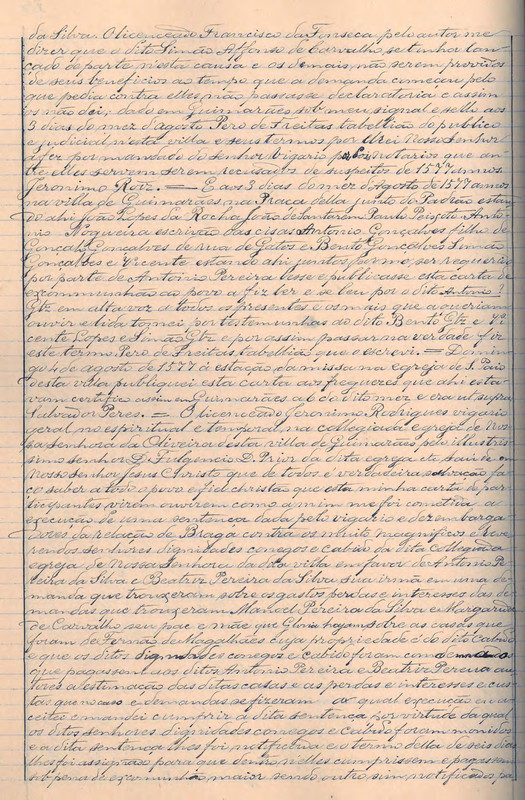 da Silva. O licenceado Francisco da Fonseca pelo autor me
dizer que o dito Simão Affonso de Carvalho se tenhor lan-
çado de parte n'esta causa e os demais não serem providos
de seus beneficios ao tempo que a demanda começou pelo
que pedia contra elles não passasse declaratoria e assim
os não dei; dado em Guimarães sob meu signal e sello aos
3 dias do mez d'Agosto Pero de Freitas tabellião do publico
e judicial n'esta villa e seus termos por El-rei Nosso Senhor
a fez por mandado do senhor vigario pelos notarios que an-
te elles servem serem recusados de suspeitos de 1577 annos.
Jeronimo Roiz. = E aos 3 dias do mez de Agosto de 1577 annos
na villa de Guimarães, na Praça della junto do Padrão estan-
do ahi João Lopes da Rocha João de Santarem Paulo Peixoto Anto-
nio Nogueira escrivão das cisas Antonio Gonçalves filho de
Gonçalo Gonçalves de rua de Gatos e Bento Gonçalves Simão
Gonçalves e Vicente estando ahi juntos por me ser requerido
por parte de Antonio Pereira lesse e publicasse esta carta de
excommunhão ao povo a fiz ler e se leu por o dito Antonio?
Glz em alta voz a todos os presentes e os mais que a queriam
ouvir e lida tomei por testemunhas ao dito Bento Glz e Vi-
cente Lopes e Simão Glz e por assim passar na verdade fiz
este termo Pero de Freitas tabellião que o escrevi. = Domin-
go 4 de agosto de 1577 à estação da missa na egreja de S. Paio
d'esta villa publiquei esta carta aos freguezes que ahi esta-
vam certifico assim em Guimarães os b do dito mez e era ut supra
Salvador Peres. = O licenceado Jeronimo Rodrigues vigario
geral no espiritual e temporal na collegiada egreja de Nos-
sa Senhora da Oliveira d'esta villa de Guimarães pelo illustris-
simo senhor D. Fulgencio D. Prior da dita egreja etc. Saude em
Nosso Senhor Jesus Christo que de todos é verdadeira salvação fa-
ço saber a todo o povo e fiel christão que esta minha carta de par-
ticipantes virem ouvirem como a mim me foi comettida a
execução de uma sentença dada pelo vigario e dezembarga-
dores da relação de Braga contra os muito magnificos e reve-
rendos senhores dignidades conegos e cabido da dita collegiada
egreja de Nossa Senhora da dita villa em favor de Antonio Pe-
reira da Silva e Beatriz Pereira da Silva sua irmã em uma de-
manda que trouxeram sobre os gastos perdas e interesses das de-
mandas que trouxeram Manuel Pereira da Silva e Margarida
de Carvalho seu pae e mãe que Gloria hajam sobre as casas que
foram de Fernão de Magalhães cuja propriedade é do dito Cabido
e que os ditos dignidades conegos e cabido foram
que pagassem aos ditos Antonio Pereira e Beatriz Pereira au-
tores a estimação das ditas casas e as perdas e interesses e cus-
tas que no caso e demandas se fizeram a qual execução eu ac-
ceitei e mandei cumprir a dita sentença por virtude da qual
os ditos senhores dignidades conegos e cabido foram monidos
e a dita sentença lhes foi notificada e o termo della de seis dias
lhes foi assignado para que dentro nelles cumprissem e pagassem
sob pena de excomunhão maior sendo outro sim notificados pa